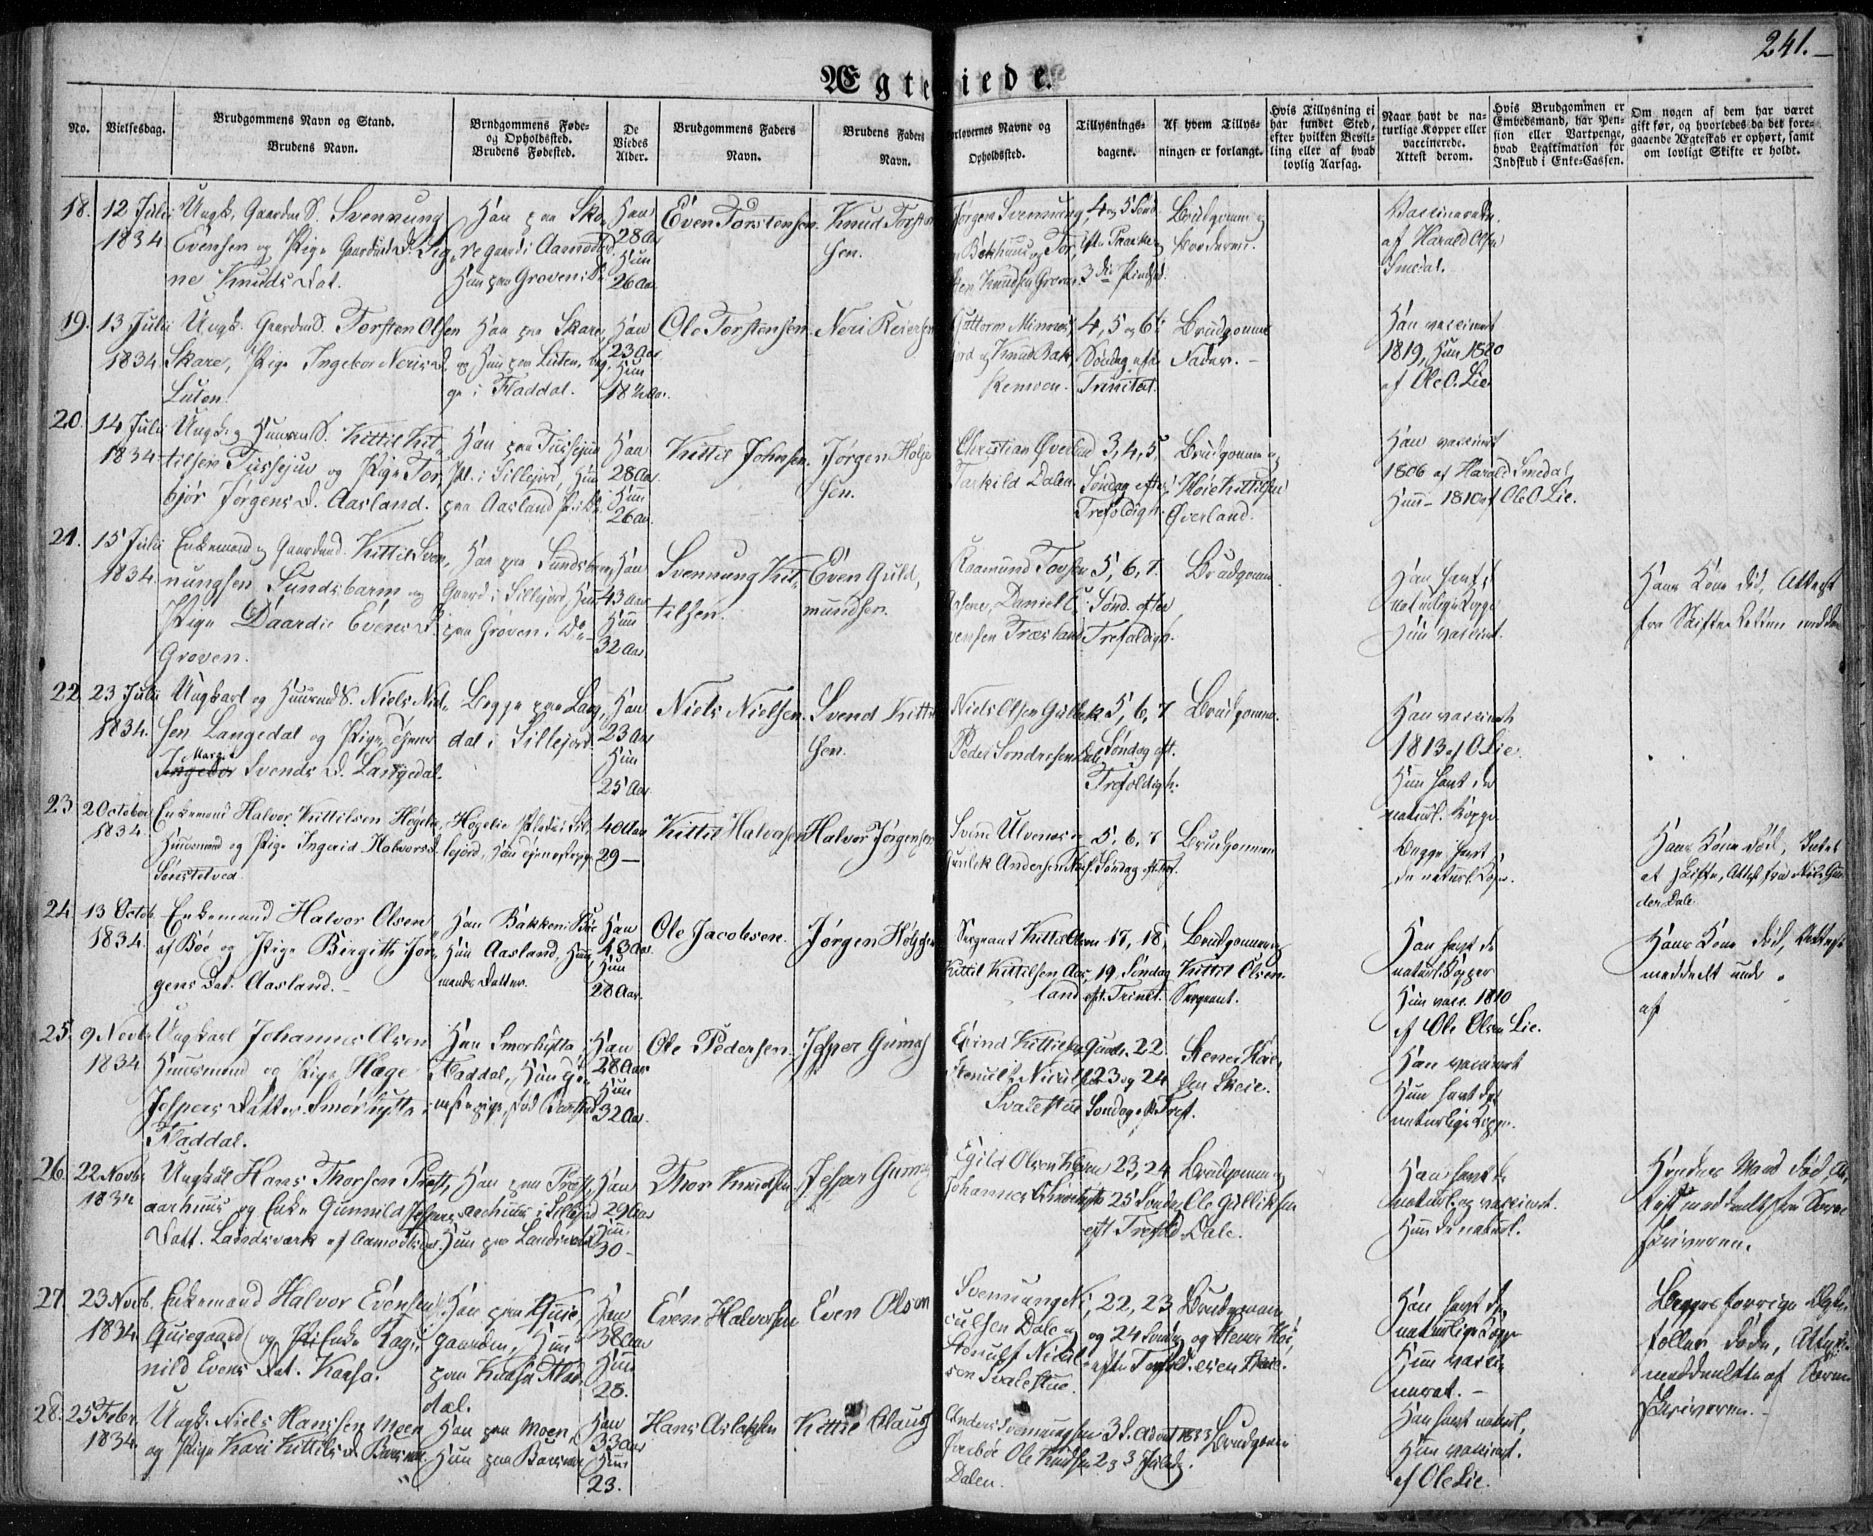 241.
Ægteviede.
No.
Vielsesdag.
Brudgommens Navn og Stand.
Brudens Navn.
Brudgommens Føde-
og Opholdssted.
Brudens Fødested.
De
Viedes
Alder.
Brudgommens Faders
Navn.
Brudens Faders
Navn.
orlovernes Navne og
Opholdssted.
Tillysnings-
dagene.
Af hvem Tillys-
ningen er forlangt.
Hvis Tillysning ei
har fundet Sted,
efter hvilken Bevil-
ling eller af hvad
lovlig Aarsag.
Naar havt de na-
turlige Kopper eller
vaccinerede.
Attest derom.
Hvis Brudgommen er
Embedsmand, har Pen-
sion eller Vartpenge,
hvad Legitimation for
Indskud i Enke-Cassen.
Om nogen af dem har været
gift før, og hvorledes da det fore-
gaaende Ægteskab er ophørt, samt
om lovligt Skifte er holdt.
18. 12 Juli
1834
Ungk. Gaardm S. Svennung
Evensen og Pige Gaardm D. Sig-
ne Knuds Dat.
Han paa Ska-
re gaard i Aamotsd.
Hun paa Groven i
Han
28 Aar
Hun
26 Aar.
Even Torstensen.
Knud Torsten
sen.
Jørgen Svennung
Bekhuus og Tor-
sten Knudsen Groven
4 og 5 Sønd.
efter Paaske,
3die Pindsed.
Brudgommen og
Forloverne.
Vaccinerede.
af Harald Olsen
Smedal.
19. 13 Julii
1834
Ungk. Gaardm S. Torsten Olsen
Skare, Pige Ingebor Neris D.
Luten.
Han paa Skare,
og Hun paa Luten, beg-
ge i Fladdal.
Han
23 Aar
Hun
18 ½ Aar.
Ole Torstensen.
Neri Reiersen
Guttorm Minnes-
jord og Knud Bak-
kemoen.
4, 5 og 6te
Søndag eft.
Trinitat.
Brudgommens
Fader.
Han vaccineret
1819, Hun 1820
af Ole O. Lie
20. 14 Julii
1834
Ungk. og Huusm S. Kittil Kit-
tilsen Tussejuv og Pige Tor-
bjør Jørgens D. Aasland.
Han paa Tussejuv
Pl. i Sillejord, Hun
paa Aasland
Han
28 Aar
Hun
26 Aar.
Kittil Johnsen.
Jørgen Holje
sen.
Christian Øverland
Tarkild Dalen
3, 4, 5
Søndag efter
Trefoldigh.
Brudgommen og
Høie Kittilsen
Øverland.
Han vaccineret
1806 af Harald Smedal
Hun 1810 af Ole O. Lie.
21. 15 Julii
1834.
Enkemand og Gaardmd. Kittil Sven-
nungsen Sundsbarm og
Pige Daardie Evens D.
Groven.
Han paa Sundsbarm
Gaard i Sillejord, Hun
paa Groven i Do
Han
43 Aar
Hun
32 Aar.
Svennung Kit-
tilsen.
Even Guld-
mundsen.
Raamund Tovsen
Aasene, Daniel
vensen Træsland
5, 6, 7.
Sønd. efter
Trefoldigh.
Brudgommen
Han havt
naturlige Kopper
Hun vaccineret.
Hans Kone død, Attest
fra Skifte Retten meddelt
22 23 Julii
1834.
Ungkarl og Huusmd S. Niels Niel-
sen Langedal og Pige, tjener
Marge
Ingebor Svends D. Langedal.
Begge paa Lang-
dal i Sillejord
Han
23 Aar
Hun
25 Aar
Niels Nielsen.
Svend Kittil
sen.
Niels Olsen Gulbek
Peder Sondresen Dale
5, 6, 7
Søndag eft.
Trefoldigh.
Brudgommen.
Han vaccineret
1813 af O Lie.
Hun havt de
naturl. Kopper
23 2 October
1834.
Enkemand Halvor Kittilsen Høgelie
Huusmand og Pige Ingerid Halvorsd.
Sønstetved
Høgelie Plads i Sil-
lejord, Hun tjenestepige
40 Aar
29 —
Kittil Halvorsen
Halvor Jørgensen
Svend Ulvenes og
Andersen
5, 6, 7
Søndag eft.
Brudgommen
Begge havt
de naturl. Kopper.
Hans Kone død, Intet
at skifte, Attest fra Niels Gun-
der Dale
24. 13 Octob.
1834.
Enkemand Halvor Olsen
af Bøe og Pige Birgith Jør-
gens Dat. Aasland.
Han Bakken i Bøe
Hun Aasland, Huus-
mands Datter.
Han
43 Aar.
Hun
28 Aar.
Ole Jacobsen.
Jørgen Høljesen
Sergeant Kittil Olsen
Kittil Kittilsen Aas-
land
17, 18,
19, Søndag
eft. Trinit.
Brudgommen og
Kittil Olsen
Sergeant.
Han havt de
naturl. Kopper
Hun vacc. 1810
af Ole Olsen Lie.
Hans Kone død, Attest
meddeelt under
af
25. 9 Novbr.
1834
Ungkarl Johannes Olsen
Huusmand og Pige Hæge
Jespers Datter Smørhytte i
Fladdal.
Han Smørhytta i
Fladdal, Hun tje-
nestepige, fød
Han
28 Aar
Hun
32 Aar
Ole Pedersen.
Jesper
Eivind Kittilsen
Stenulf Nicul
Svalestue
22
23 og 24
Søndag eft. Tref.
Stener Høi-
sen Skeie.
Han vaccineret
Hun havt de
naturlige Kopper.
26. 22 Novbr.
1834
Ungkarl Hans Thorsen Præst-
aarhuus og Enke Gunnild Jespers
Datt. Landsverk af Aamotsdal.
Han paa Præst-
aarhuus i Sillejord
Hun paa Landsverk
Han
29 Aar
Hun
30 —
Thor Knudsen.
Jesper
Egild Olsen
Johannes
23, 24
25 Søndag
eft Trefold
Brudgommen og
Ole Gulliksen
Dale.
Han havt de
naturl. og vaccineret.
Hun de naturl.
Hendes Mand død, At-
test meddeelt fra Soren-
skriveren.
27. 23 Novb.
1834
Enkemand Halvor Evensen
Qviegaard og Enke Rag-
nild Evens Dat. Kaasa.
Han paa Qvie-
gaarden, Hun
paa Kaasa Flad-
dal.
Han
38 Aar
Hun
28.
Even Halvorsen
Even Olson
Svennung Ni-
culsen Dale og
Stenulf Nicul-
sen Svalestue.
22, 23
og 24 Søndag
efter Trefold.
Brudgommen
og Stener Høi-
esen Skeie.
Han havt de
naturlige Kopper
Hun vacci-
nerat. —
Begges forrige Ægte-
feller døde, Attester
meddeelte af Soren
Skriveren. —
28. 25 Febr.
1834.
Ungk. Niels Hanssen Moen
og Pige Kari Kittils D.
Han paa Moen,
Hun paa
Han
33 Aar
Hun
23.
Hans Aslaksen
Kittil Olaus
Anders Svennungsen
Øverbøe Ole Knudsen
Dalen.
3 S. Advent 1833
2 og 3 Juledg.
Brudgommen
Han havt naturl.
Hun vaccineret.
af Ole Lie.